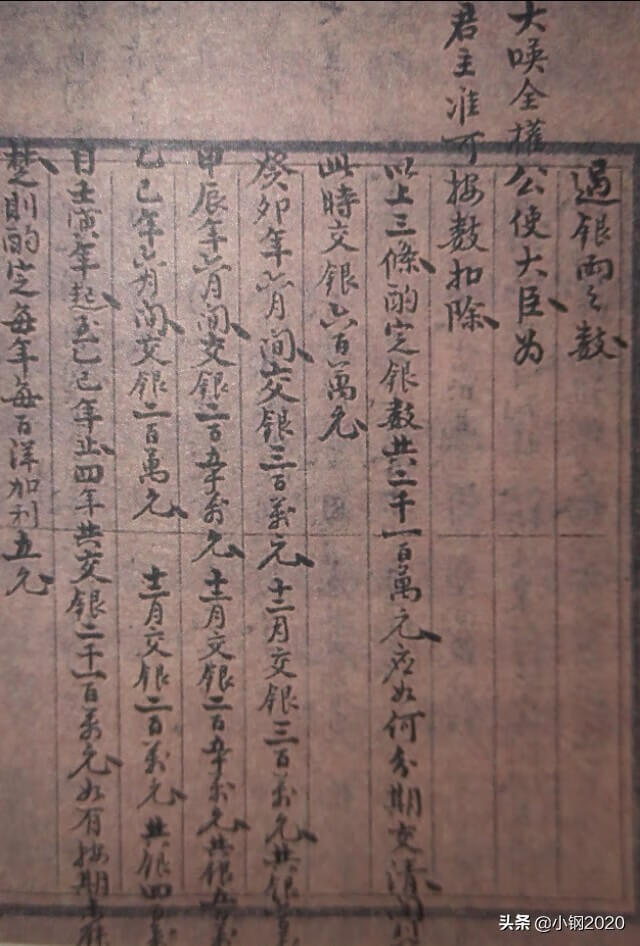 過銀兩之數
大𠸄全權公使大臣为
君主准可按數扣除
以上三條酌定銀數共二千一百萬元應如何分期交清
此時交銀六百萬元
癸卯年六月間交銀三百萬元 十二月交銀三百萬元共銀
甲辰年六月間交銀二百五十萬元 十二月交銀二百五十萬元共銀五百萬
乙巳年六月間交銀二百萬元 十二月交銀二百萬元共銀四百萬
自壬寅年起至乙巳年止四年共交銀二千一百萬元如有按期未
楚則酌定每年每百洋加利五元
头条 @小钢2020